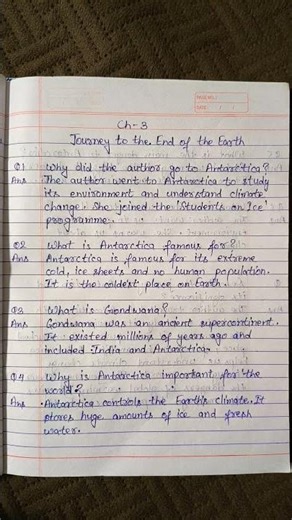 PAGE NO.:
DATE: / /
Ch-3
Journey to the End of the Earth
Q1 Why did the author go to Antarctica?
Ans The author went to Antarctica to study
its environment and understand climate
change. She joined the 'Students on Ice'
programme.
Q2 What is Antarctica famous for?
Ans Antarctica is famous for its extreme
cold, ice sheets and no human population.
It is the coldest place on Earth.
Q3 What is Gondwana?
Ans Gondwana was an ancient supercontinent.
It existed millions of years ago and
included India and Antarctica.
Q4 Why is Antarctica important for the
world?
Ans Antarctica controls the Earth's climate. It
stores huge amounts of ice and fresh
water.